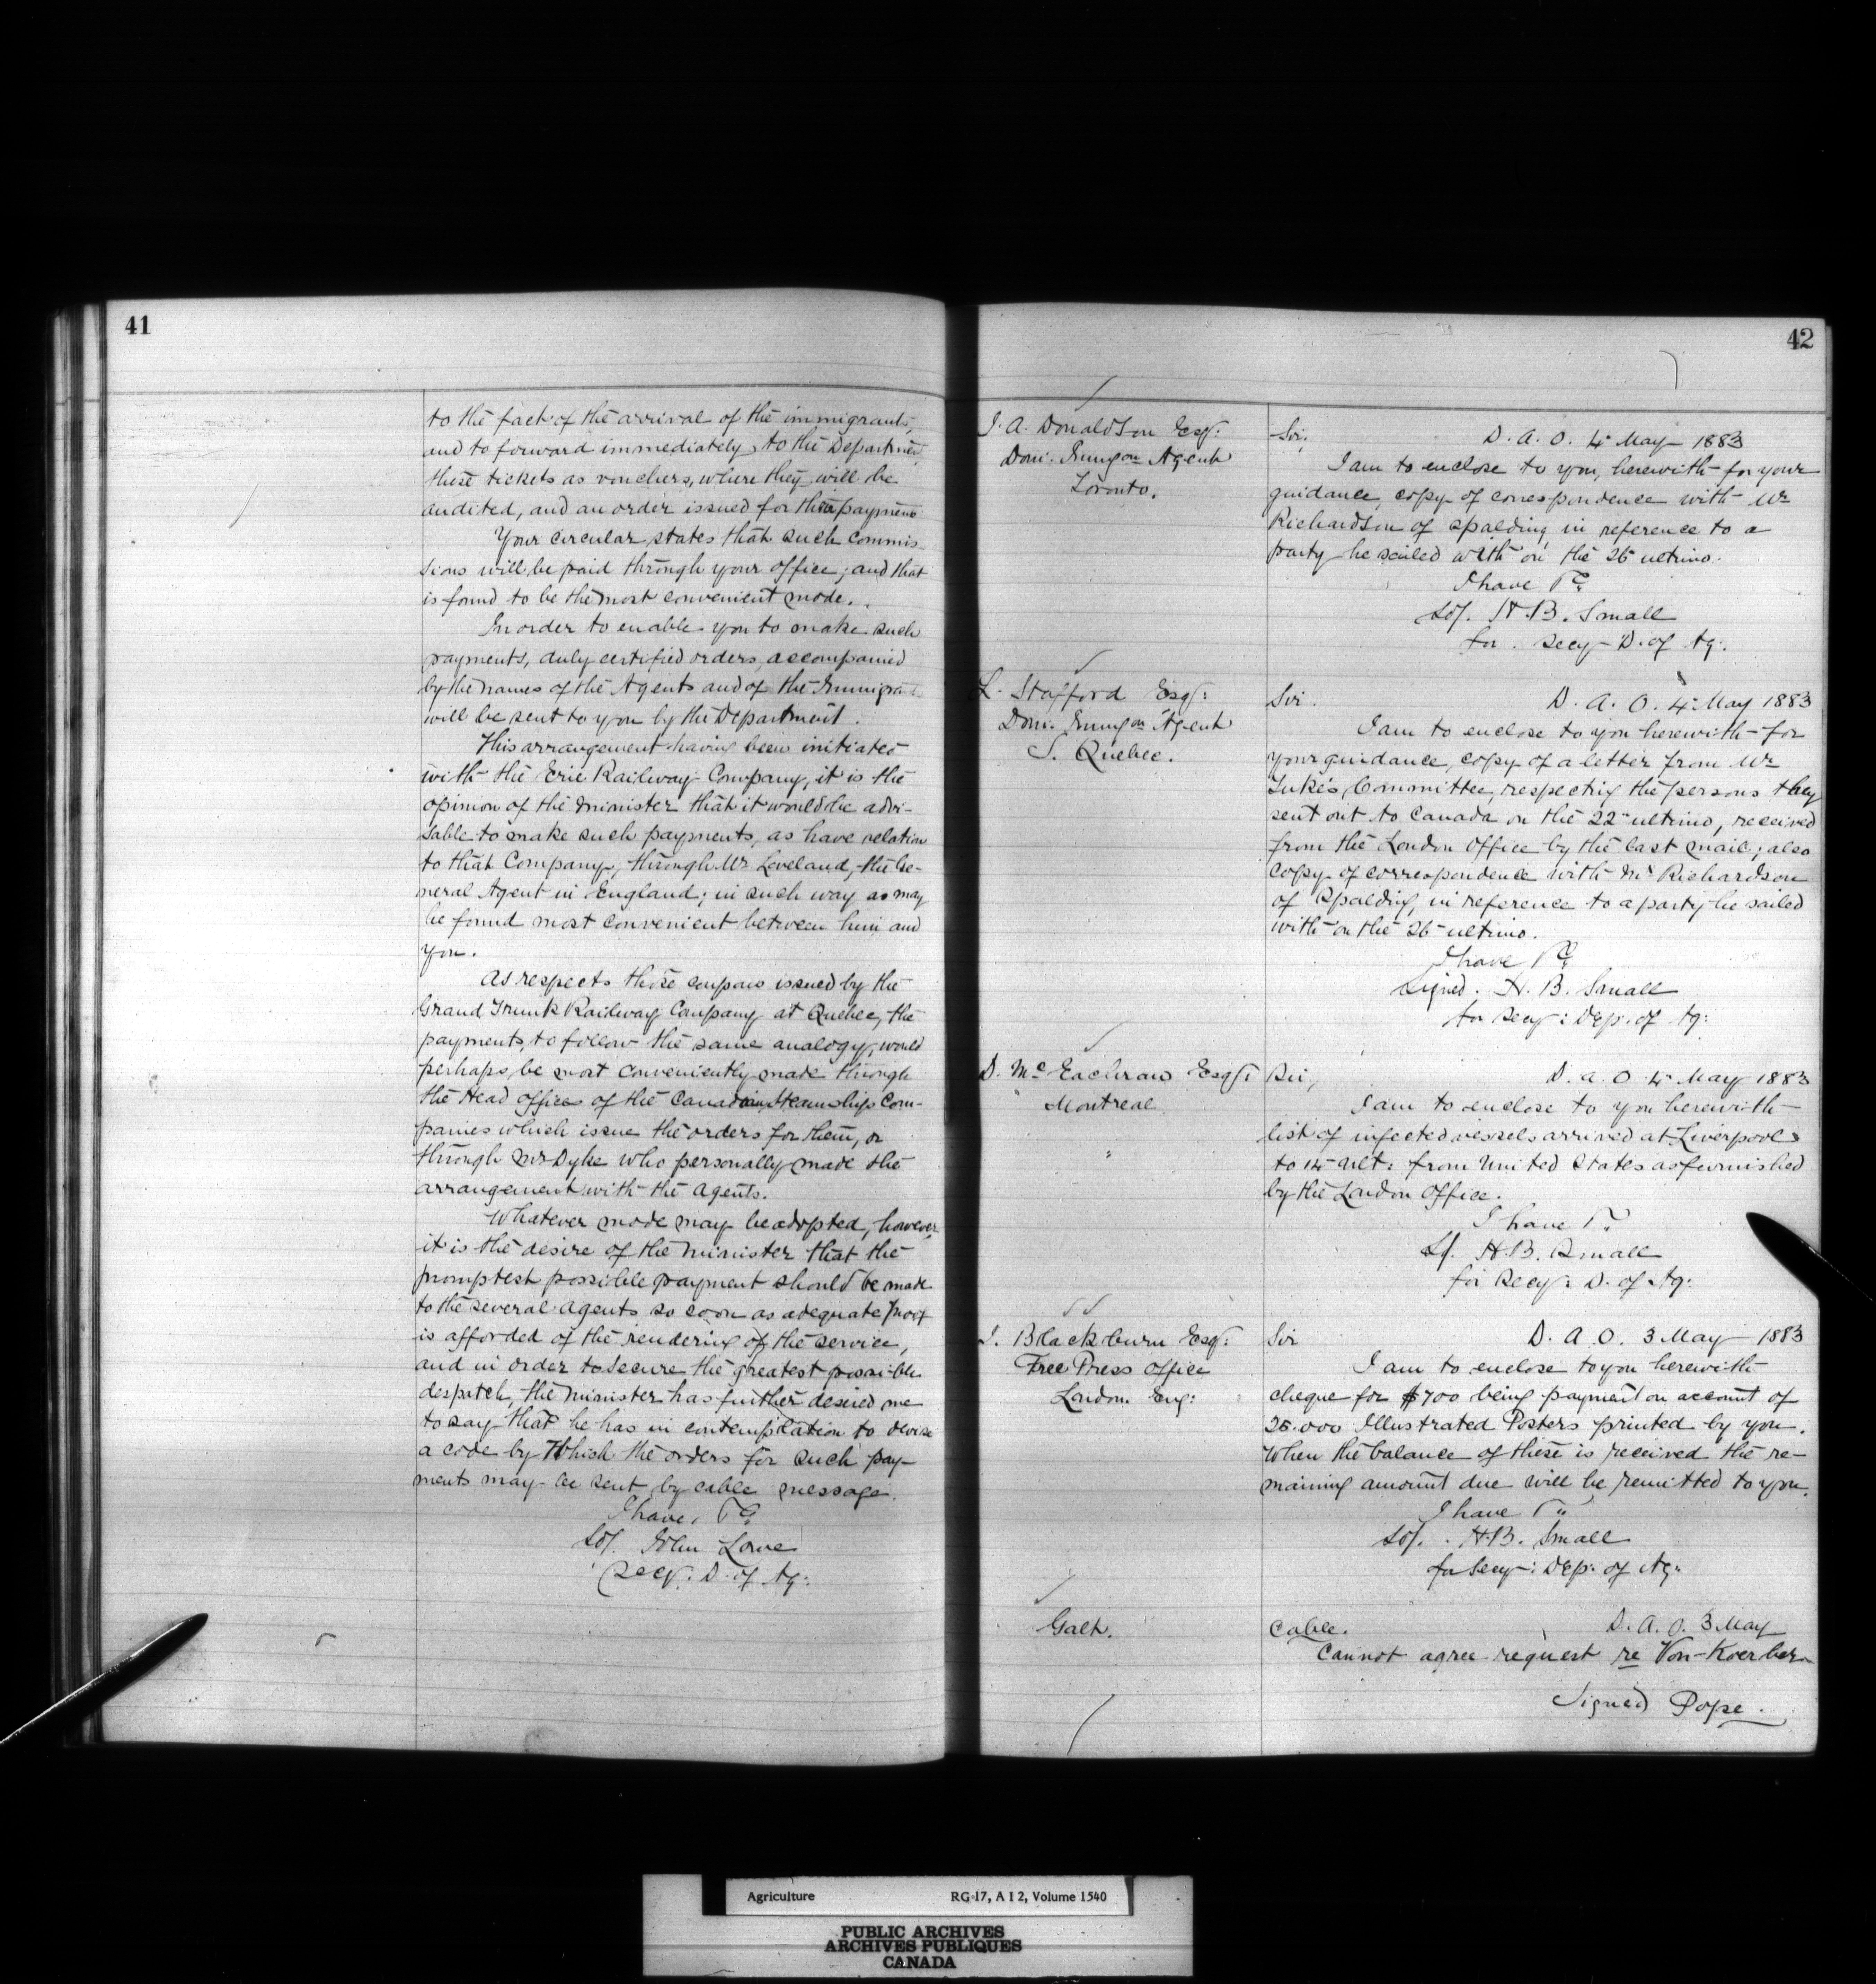 41
to the fact of the arrival of the immigrants,
and to forward immediately, to the Department
these tickets as vouchers, where they will be
audited, and an order issued for their payment
Your circular states that such commis-
sions will be paid through your office; and that
is found to be the most convenient mode.
In order to enable you to make such
payments, duly certified orders, accompanied
by the names of the Agents and of the Immigrants
will be sent to you by the Department.
This arrangement having been initiated
with the Erie Railway Company, it is the
opinion of the Minister that it would be advi-
sable to make such payments, as have relation
to that Company, through Mr Leveland, the Ge-
neral Agent in England; in such way as may
be found most convenient between him and
you.
As respects those coupons issued by the
Grand Trunk Railway Company at Quebec, the
payments, to follow the same analogy, would
perhaps, be most conveniently made through
the Head offices of the Canadian Steamship Com-
panies which issue the orders for them, or
through Mr Dyke who personally made the
arrangement with the Agents.
Whatever mode may be adopted, however,
it is the desire of the Minister that the
promptest possible payment should be made
to the several Agents so soon as adequate proof
is afforded of the rendering of the service,
and in order to secure the greatest possible
despatch, the Minister has further desired me
to say that he has in contemplation to devise
a code by which the orders for such pay-
ments may be sent by cable message.
I have, &c
Sd/. John Lowe
Secy: D. of Ag:
42
J. A. Donaldson Esq:
Dom: Immgon Agent
Toronto.
Sir, D. A. O. 4 May 1883
I am to enclose to you, herewith for your
guidance, copy of correspondence with Mr
Richardson of Spalding in reference to a
party he sailed with on the 26 ultimo.
I have &c
Sd/. H. B. Small
for. Secy D. of Ag:
L. Stafford Esq:
Dom. Immgon Agent
S. Quebec.
Sir. D. A. O. 4 May 1883
I am to enclose to you herewith for
your guidance, copy of a letter from Mr
Tuke's Committee, respecting the persons they
sent out to Canada on the 22 ultimo, received
from the London Office by the last mail; also
copy of correspondence with Mr Richardson
of Spalding, in reference to a party he sailed
with on the 26 ultimo.
I have &c
Signed. H. B. Small
for Secy: Dep. of Ag:
D. McEachran Esq:
Montreal
Sir, D. A. O 4 May 1883
I am to enclose to you herewith
list of infected vessels arrived at Liverpool
to 14 ult: from United States as furnished
by the London Office.
I have &c
Sd/. H. B. Small
for Secy: D. of Ag:
J. Blackburn Esq:
Free Press Office
London Eng:
Sir D. A. O. 3 May 1883
I am to enclose to you herewith
cheque for $700 being payment on account of
25.000 Illustrated Posters printed by you.
When the balance of these is received the re-
maining amount due will be remitted to you.
I have &c
Sd/. H. B. Small
for Secy: Dep: of Ag:
Galt.
Cable. D. A. O. 3 May
Cannot agree request re Von-Koerber
Signed Pope.
Agriculture RG 17, A I 2, Volume 1540
PUBLIC ARCHIVES
ARCHIVES PUBLIQUES
CANADA